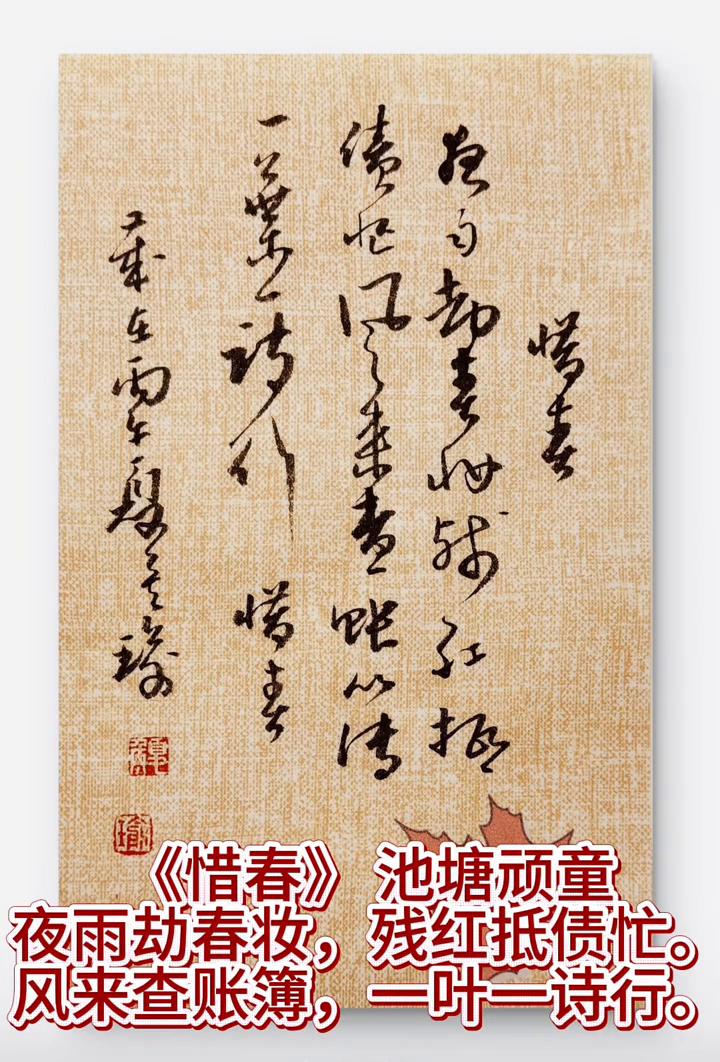 惜春
夜雨劫春妆残红抵
债忙风来查账簿
一葉一詩行 惜春
歲在丙午夏瑜
《惜春》 池塘顽童
夜雨劫春妆，残红抵债忙。
风来查账簿，一叶一诗行。